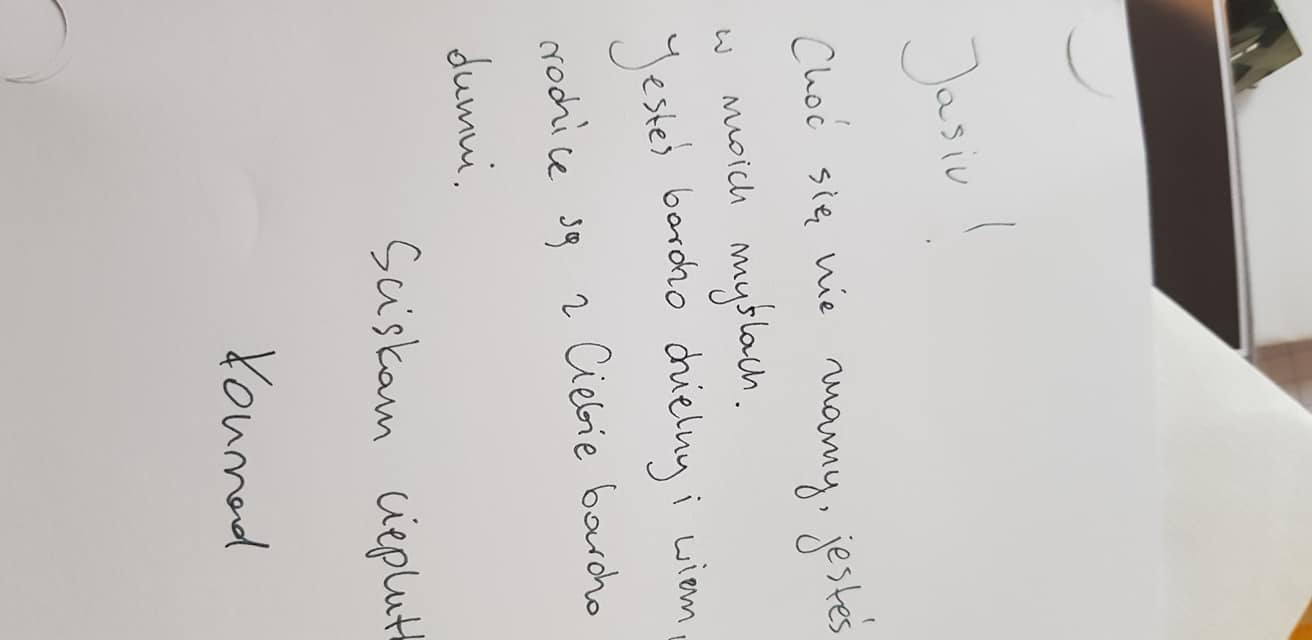 Jasiu!
Choć się nie znamy, jesteś
w moich myślach.
Jesteś bardzo dzielny i wiem,
rodzice są z Ciebie bardzo
dumni.
Sciskam
Konrad